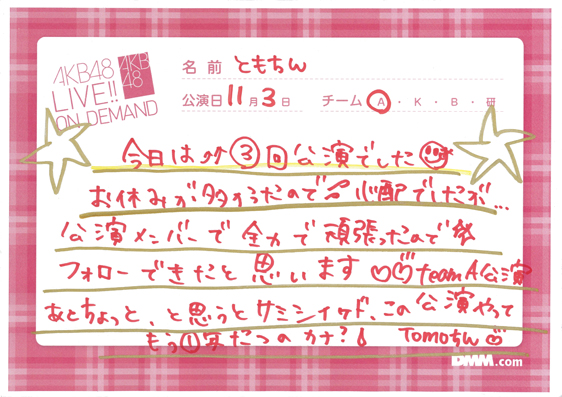 AKB48
LIVE!!
ON DEMAND
AKB
48
名前 ともちん
公演日 11月3日 チーム A・K・B・研
今日は 3回公演でした
お休みが多かったので 心配でしたが...
公演メンバーで全力で頑張ったので
フォローできたと思います teamA公演
あとちょっと、と思うとサミシイケド、この公演やって
もう1年だつのカナ? Tomoちん
DMM.com